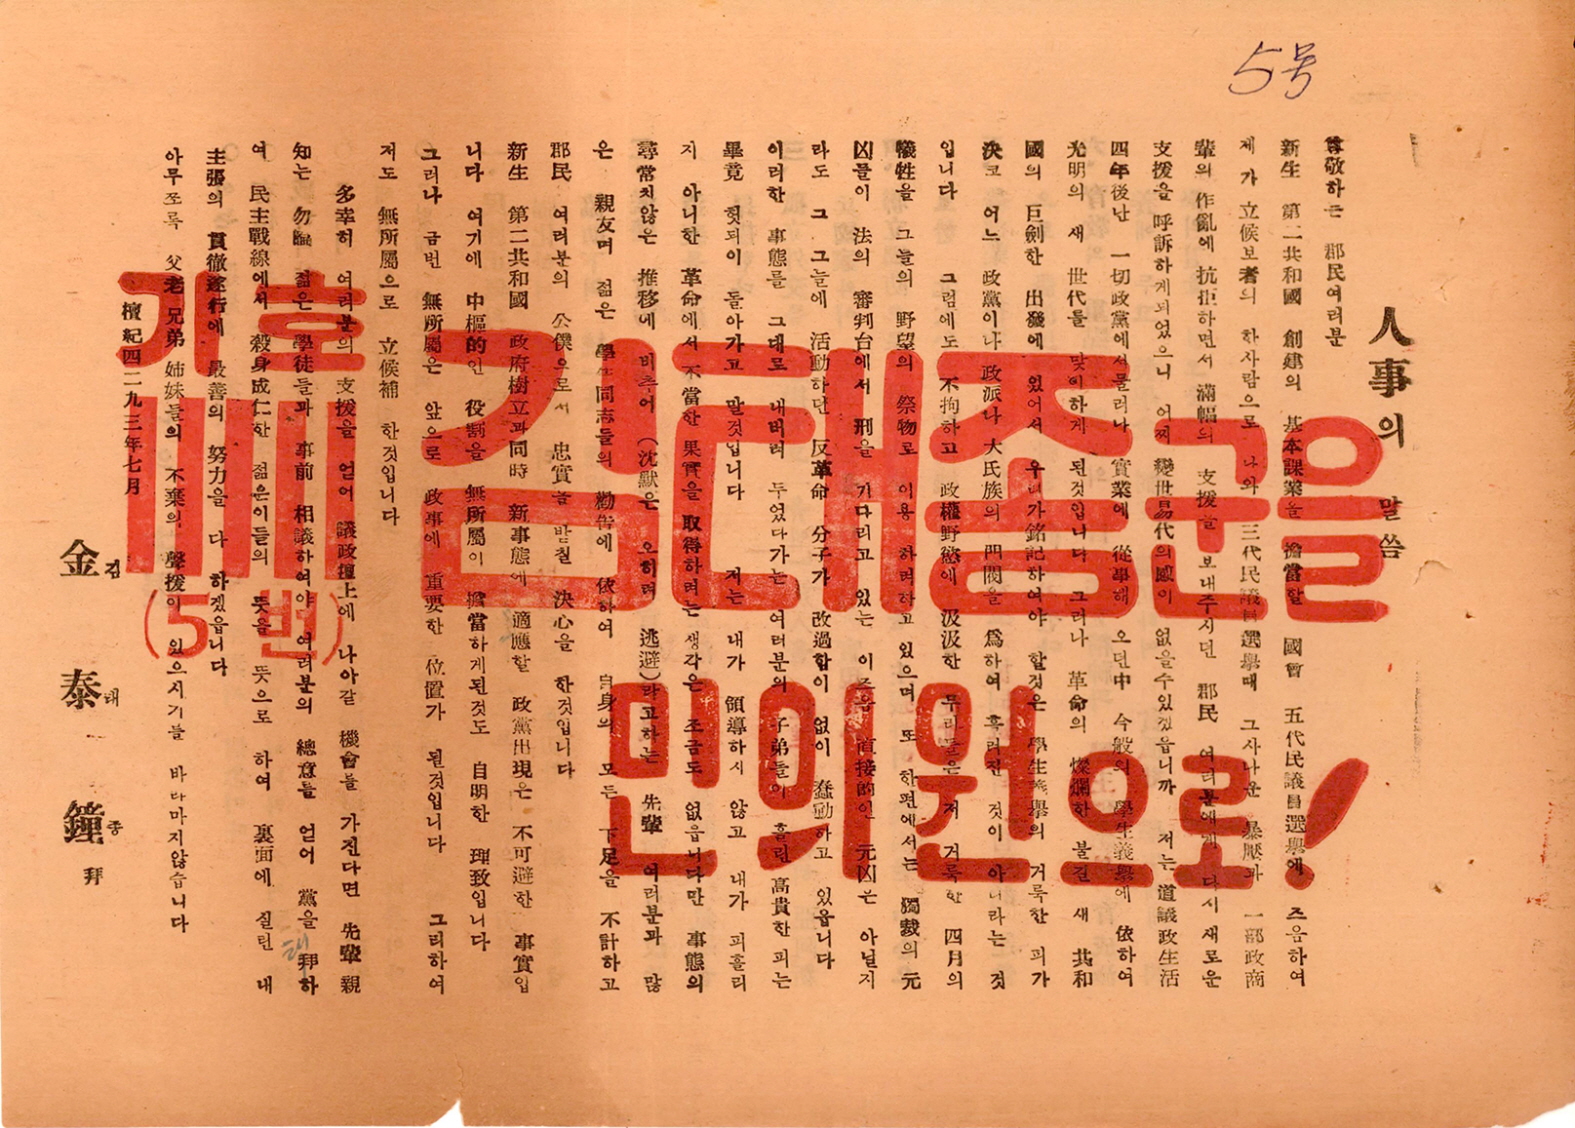 5号
人事의 말씀
尊敬하는 郡民여러분
新生 第二共和國 創建의 基本課業을 擔當할 國會 五代民議員選擧에 즈음하여
제가 立候보者의 한사람으로 나와 三代民議員選擧때 그사나운 暴壓과 一部政商
輩의 作亂에 抗拒하면서 滿幅의 支援을 보내주시던 郡民 여러분에게 다시 새로운
支援을 呼訴하게되었으니 어찌 變世易代의 感이 없을수있겠읍니까 저는 道議政生活
四年後난 一切政黨에서물러나 實業에 從事해 오던中 今般의 學生義擧에 依하여
光明의 새 世代를 맞이하게 된것입니다 그러나 革命의 燦爛한 불길 새 共和
國의 巨劍한 出發에 있어서 우리가銘記하여야 할것은 學生義擧의 거룩한 피가
決코 어느 政黨이나 政派나 大氏族의 門閥을 爲하여 흘려진 것이 아니라는 것
입니다 그럼에도 不拘하고 政權野慾에 汲汲한 무리들은 저 거룩한 四月의
犧牲을 그늘의 野望의 祭物로 이용 하려하고 있으며 또 한편에서는 獨裁의 元
凶들이 法의 審判台에서 刑을 기다리고 있는 이즈음 直接的인 元凶은 아닐지
라도 그 그늘에 活動하던 反革命 分子가 改過함이 없이 蠢動하고 있읍니다
이러한 事態를 그대로 내버려 두었다가는 여러분의 子弟들이 흘린 高貴한 피는
畢竟 헛되이 돌아가고 말것입니다 저는 내가 領導하시 않고 내가 피흘리
지 아니한 革命에서 不當한 果實을 取得하려는 생각은 조금도 없읍니다만 事態의
尋常치않은 推移에 비추어 (沈默은 오히려 逃避)라고하는 先輩 여러분과 많
은 親友며 젊은 學生同志들의 勸告에 依하여 自身의 모든 下足을 不計하고
郡民 여러분의 公僕으로서 忠實을 받칠 決心을 한것입니다
新生 第二共和國 政府樹立과同時 新事態에 適應할 政黨出現은 不可避한 事實입
니다 여기에 中樞的인 役割을 無所屬이 擔當하게된것도 自明한 理致입니다
그러나 금번 無所屬은 앞으로 政事에 重要한 位置가 될것입니다 그리하여
저도 無所屬으로 立候補 한것입니다
多幸히 여러분의 支援을 얻어 議政壇上에 나아갈 機會를 가진다면 先輩 親
知는 勿論 젊은 學徒들과 事前 相議하여야 여러분의 總意를 얻어 黨을 拜하
여 民主戰線에서 殺身成仁한 젊은이들의 뜻을 뜻으로 하여 裏面에 질린 내
主張의 貫徹遂行에 最善의 努力을 다 하겠읍니다
아무쪼록 父老 兄弟 姉妹들의 不棄의 聲援이 있으시기를 바라마지않습니다
檀紀四二九三年七月
金泰鐘 拜
김태종
기호
(5번)
김태종군을
민의원으로!